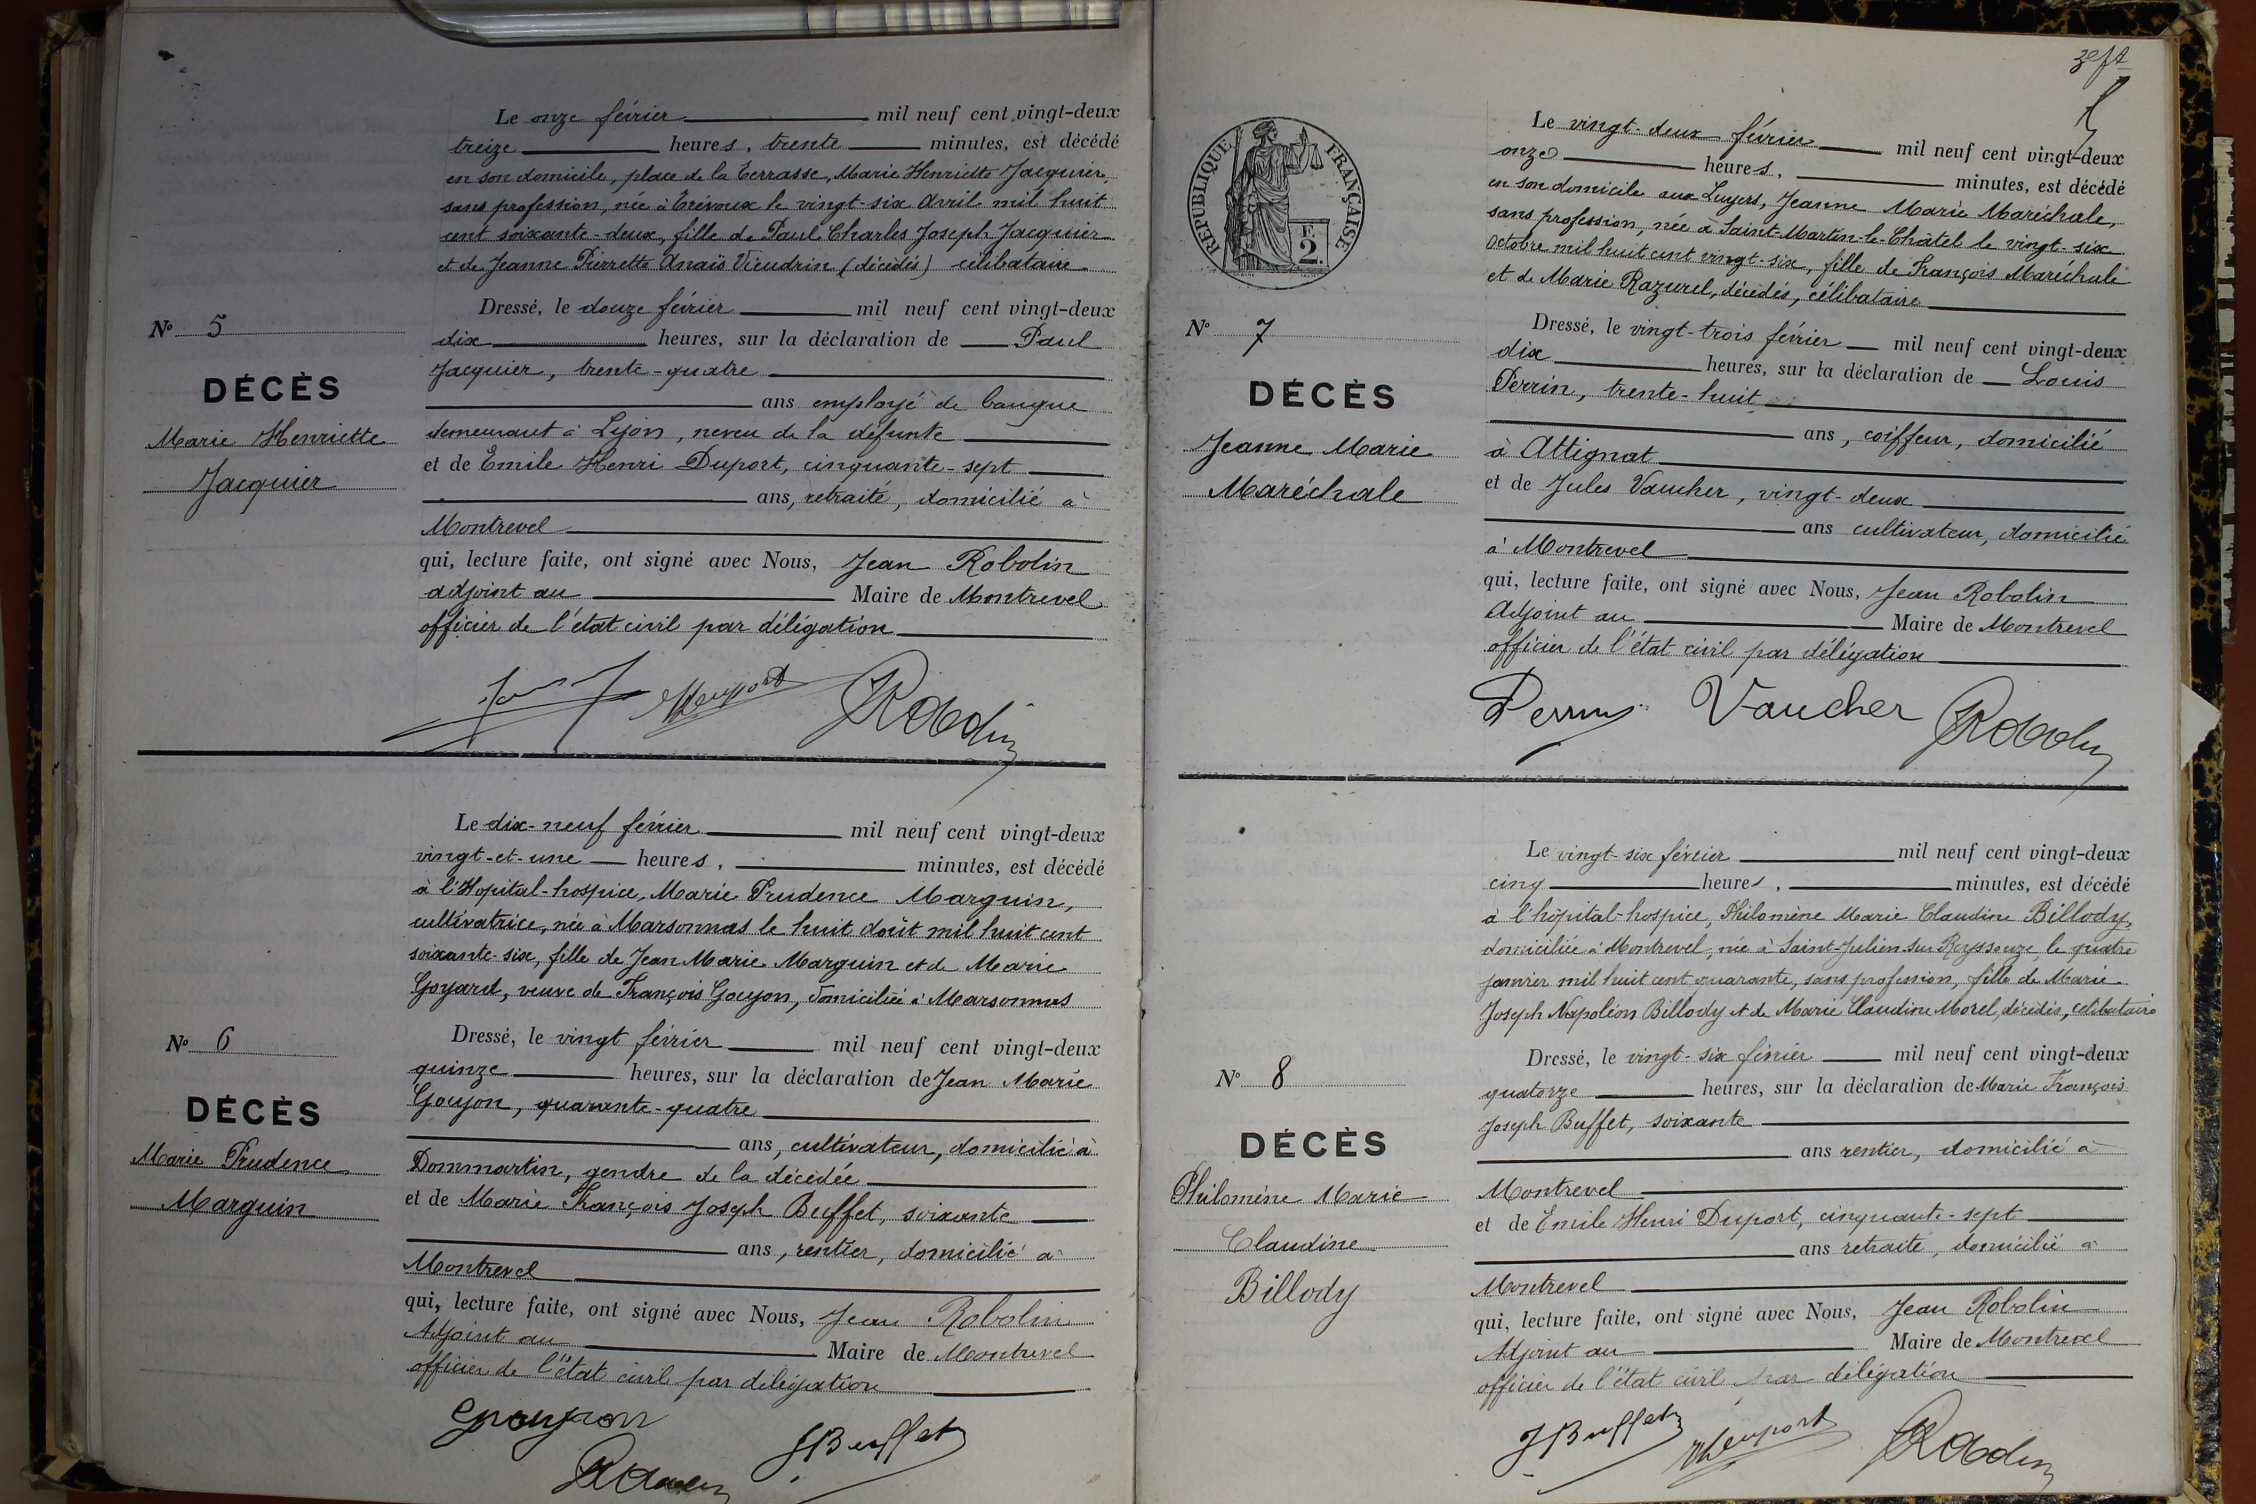 Le onze février mil neuf cent vingt-deux
treize heures, trente minutes, est décédé
en son domicile, place de la Terrasse, Marie Henriette Jacquier,
sans profession, née à Trévoux le vingt-six Avril mil huit
cent soixante-deux, fille de Paul Charles Joseph Jacquier
et de Jeanne Pierrette Anaïs Vieudrin (décédés) célibataire
Dressé, le douze février mil neuf cent vingt-deux
dix heures, sur la déclaration de Paul
Jacquier, trente-quatre
ans employé de banque
demeurant à Lyon, neveu de la défunte
et de Emile Henri Duport, cinquante-sept
ans, retraité, domicilié à
Montrevel
qui, lecture faite, ont signé avec Nous, Jean Robolin
adjoint au Maire de Montrevel
officier de l'état civil par délégation
Nº 5
DÉCÈS
Marie Henriette
Jacquier
Duport Robolin
Le dix-neuf février mil neuf cent vingt-deux
vingt-et-une heures, minutes, est décédé
à l'Hopital-hospice, Marie Prudence Marguin,
cultivatrice, née à Marsonnas le huit Août mil huit cent
soixante-six, fille de Jean Marie Marguin et de Marie
Goyard, veuve de François Goujon, domiciliée à Marsonnas
Dressé, le vingt février mil neuf cent vingt-deux
quinze heures, sur la déclaration de Jean Marie
Goujon, quarante-quatre
ans, cultivateur, domicilié à
Dommartin, gendre de la décédée
et de Marie François Joseph Buffet, soixante
ans, rentier, domicilié à
Montrevel
qui, lecture faite, ont signé avec Nous, Jean Robolin
Adjoint au Maire de Montrevel
officier de l'état civil par délégation
Nº 6
DÉCÈS
Marie Prudence
Marguin
Goujon
JBuffet
Robolin
RÉPUBLIQUE FRANÇAISE
F.
2.
Le vingt-deux février mil neuf cent vingt-deux
onze heures, minutes, est décédé
en son domicile aux Luyers, Jeanne Marie Maréchale,
sans profession, née à Saint-Martin-le-Châtel le vingt-six
Octobre mil huit cent vingt-six, fille de François Maréchale
et de Marie Razurel, décédés, célibataire
Dressé, le vingt-trois février mil neuf cent vingt-deux
dix heures, sur la déclaration de Louis
Perrin, trente-huit
ans, coiffeur, domicilié
à Attignat
et de Jules Vaucher, vingt-deux
ans cultivateur, domicilié
à Montrevel
qui, lecture faite, ont signé avec Nous, Jean Robolin
Adjoint au Maire de Montrevel
officier de l'état civil par délégation
Nº 7
DÉCÈS
Jeanne Marie
Maréchale
Perrin Vaucher Robolin
Le vingt-six février mil neuf cent vingt-deux
cinq heures, minutes, est décédé
à l'hôpital-hospice, Philomène Marie Claudine Billody,
domiciliée à Montrevel, née à Saint-Julien-sur-Reyssouze, le quatre
janvier mil huit cent quarante, sans profession, fille de Marie
Joseph Napoléon Billody et de Marie Claudine Morel, décédés, célibataire
Dressé, le vingt-six février mil neuf cent vingt-deux
quatorze heures, sur la déclaration de Marie François
Joseph Buffet, soixante
ans rentier, domicilié à
Montrevel
et de Emile Henri Duport, cinquante-sept
ans retraité, domicilié à
Montrevel
qui, lecture faite, ont signé avec Nous, Jean Robolin
Adjoint au Maire de Montrevel
officier de l'état civil par délégation
Nº 8
DÉCÈS
Philomène Marie
Claudine
Billody
JBuffet Duport Robolin